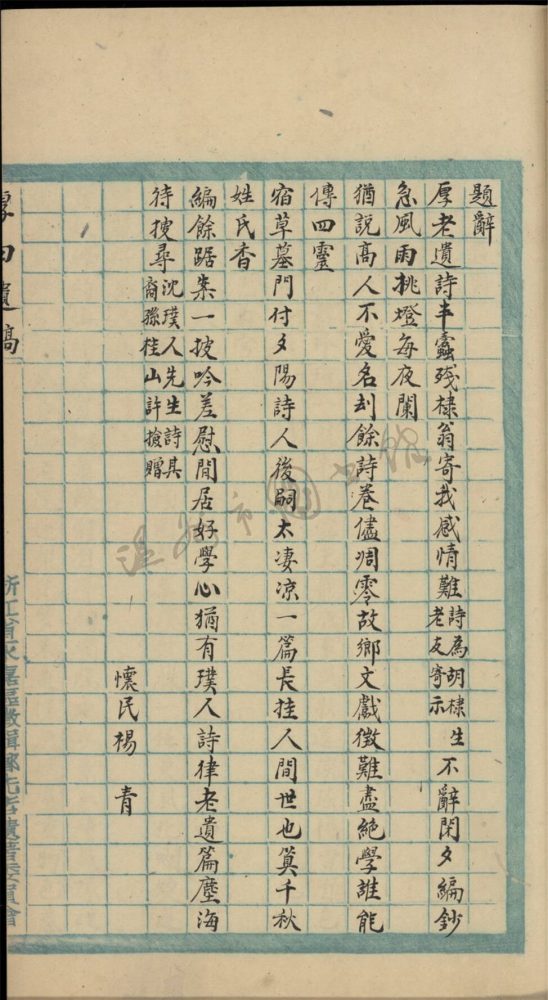 題辭
厚老遺詩半蠹殘棣翁寄我感情難詩為胡棣生老友寄示不辭閑夕編鈔
急風雨挑燈每夜闌
猶說高人不愛名刦餘詩卷儘凋零故鄉文獻徵難盡絕學誰能
傳四靈
宿草墓門付夕陽詩人後嗣太凄凉一篇長挂人間世也算千秋
姓氏香
編餘踞案一披吟差慰閒居好學心猶有璞人詩律老遺篇塵海
待搜尋沈璞人先生詩其裔孫桂山許撿贈
懷民楊青
厚田遺稿
浙江省永嘉區徵輯鄉先哲遺著委員會
溫州市圖書館